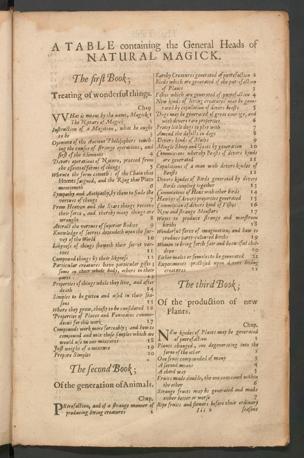 A TABLE containing the General Heads of
NATURAL MAGICK.
The first Book;
Treating of wonderful things.
Chap.
WHat is meant by the name, Magick 1
The Nature of Magick 2
Instruction of a Magician, what he ought
to be 3
Opinions of the Ancient Philosophers touch-
ing the causes of strange operations, and
first of the Elements 4
Divers operations of Nature, proceed from
the essential forms of things 5
Whence the form cometh: of the Chain that
Homer feigned, and the Ring that Plato
mentioneth 6
Sympathy and Antipathy, by them to finde the
vertues of things 7
From Heaven and the Stars things receive
their force, and thereby many things are
wrought 8
Attract the vertues of superior Bodies 9
Knowledge of Secrets dependeth upon the sur-
vey of the World 10
Likeness of things sheweth their secret ver-
tues 11
Compound things by their likeness 12
Particular creatures have particular gifts;
some in their whole body, others in their
parts 13
Properties of things while they live, and after
death 14
Simples to be gotten and used in their sea-
sons 15
Where they grow, chiefly to be considered 16
Properties of Places and Fountains commo-
dious for this work 17
Compounds work more forceably; and how to
compound and mix those simples which we
would use in our mixtures 18
Just weight of a mixture 19
Prepare Simples 20
The second Book;
Of the generation of Animals.
Chap.
PUtrefaction, and of a strange manner of
producing living creatures 1
Earthy Creatures generated of putrefaction 2
Birds which are generated of the putrefaction
of Plants 3
Fishes which are generated of putrefaction 4
New kinds of living creatures may be gene-
rated by copulation of divers beasts 5
Dogs may be generated of great courage, and
with divers rare properties 6
Pretty little dogs to play with 7
Amend the defects in dogs 8
Divers kinds of Mules 9
Mingle Sheep and Goats by generation 10
Commixtions, whereby Beasts of divers kinds
are generated 11
Copulations of a man with divers kindes of
Beasts 12
Divers kindes of Birds generated by divers
Birds coupling together 13
Commixtions of Hens with other Birds 14
Hawks of divers properties generated 15
Commixtion of divers kinds of Fishes 16
New and strange Monsters 17
Ways to produce strange and monstrous
births 18
Wonderful force of imagination; and how to
produce party-coloured births 19
Women to bring forth fair and beautiful chil-
dren 20
Either males or females to be generated 21
Experiments practised upon divers living
creatures 22
The third Book;
Of the production of new
Plants.
Chap.
NEw kindes of Plants may be generated
of putrefaction 1
Plants changed, one degenerating into the
form of the other 2
One fruit compounded of many 3
A second means 4
A third way 5
Fruits made double, the one contained within
the other 6
Strange fruits may be generated and make
either better or worse 7
Ripe fruits and flowers before their ordinary
Iii 2 seasons